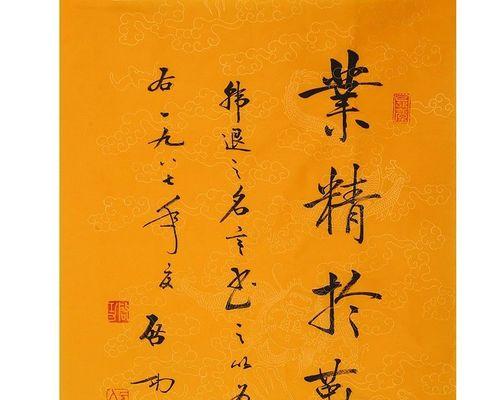 業精於勤
韩退之名言书之以为
右一九八七年夏
启功